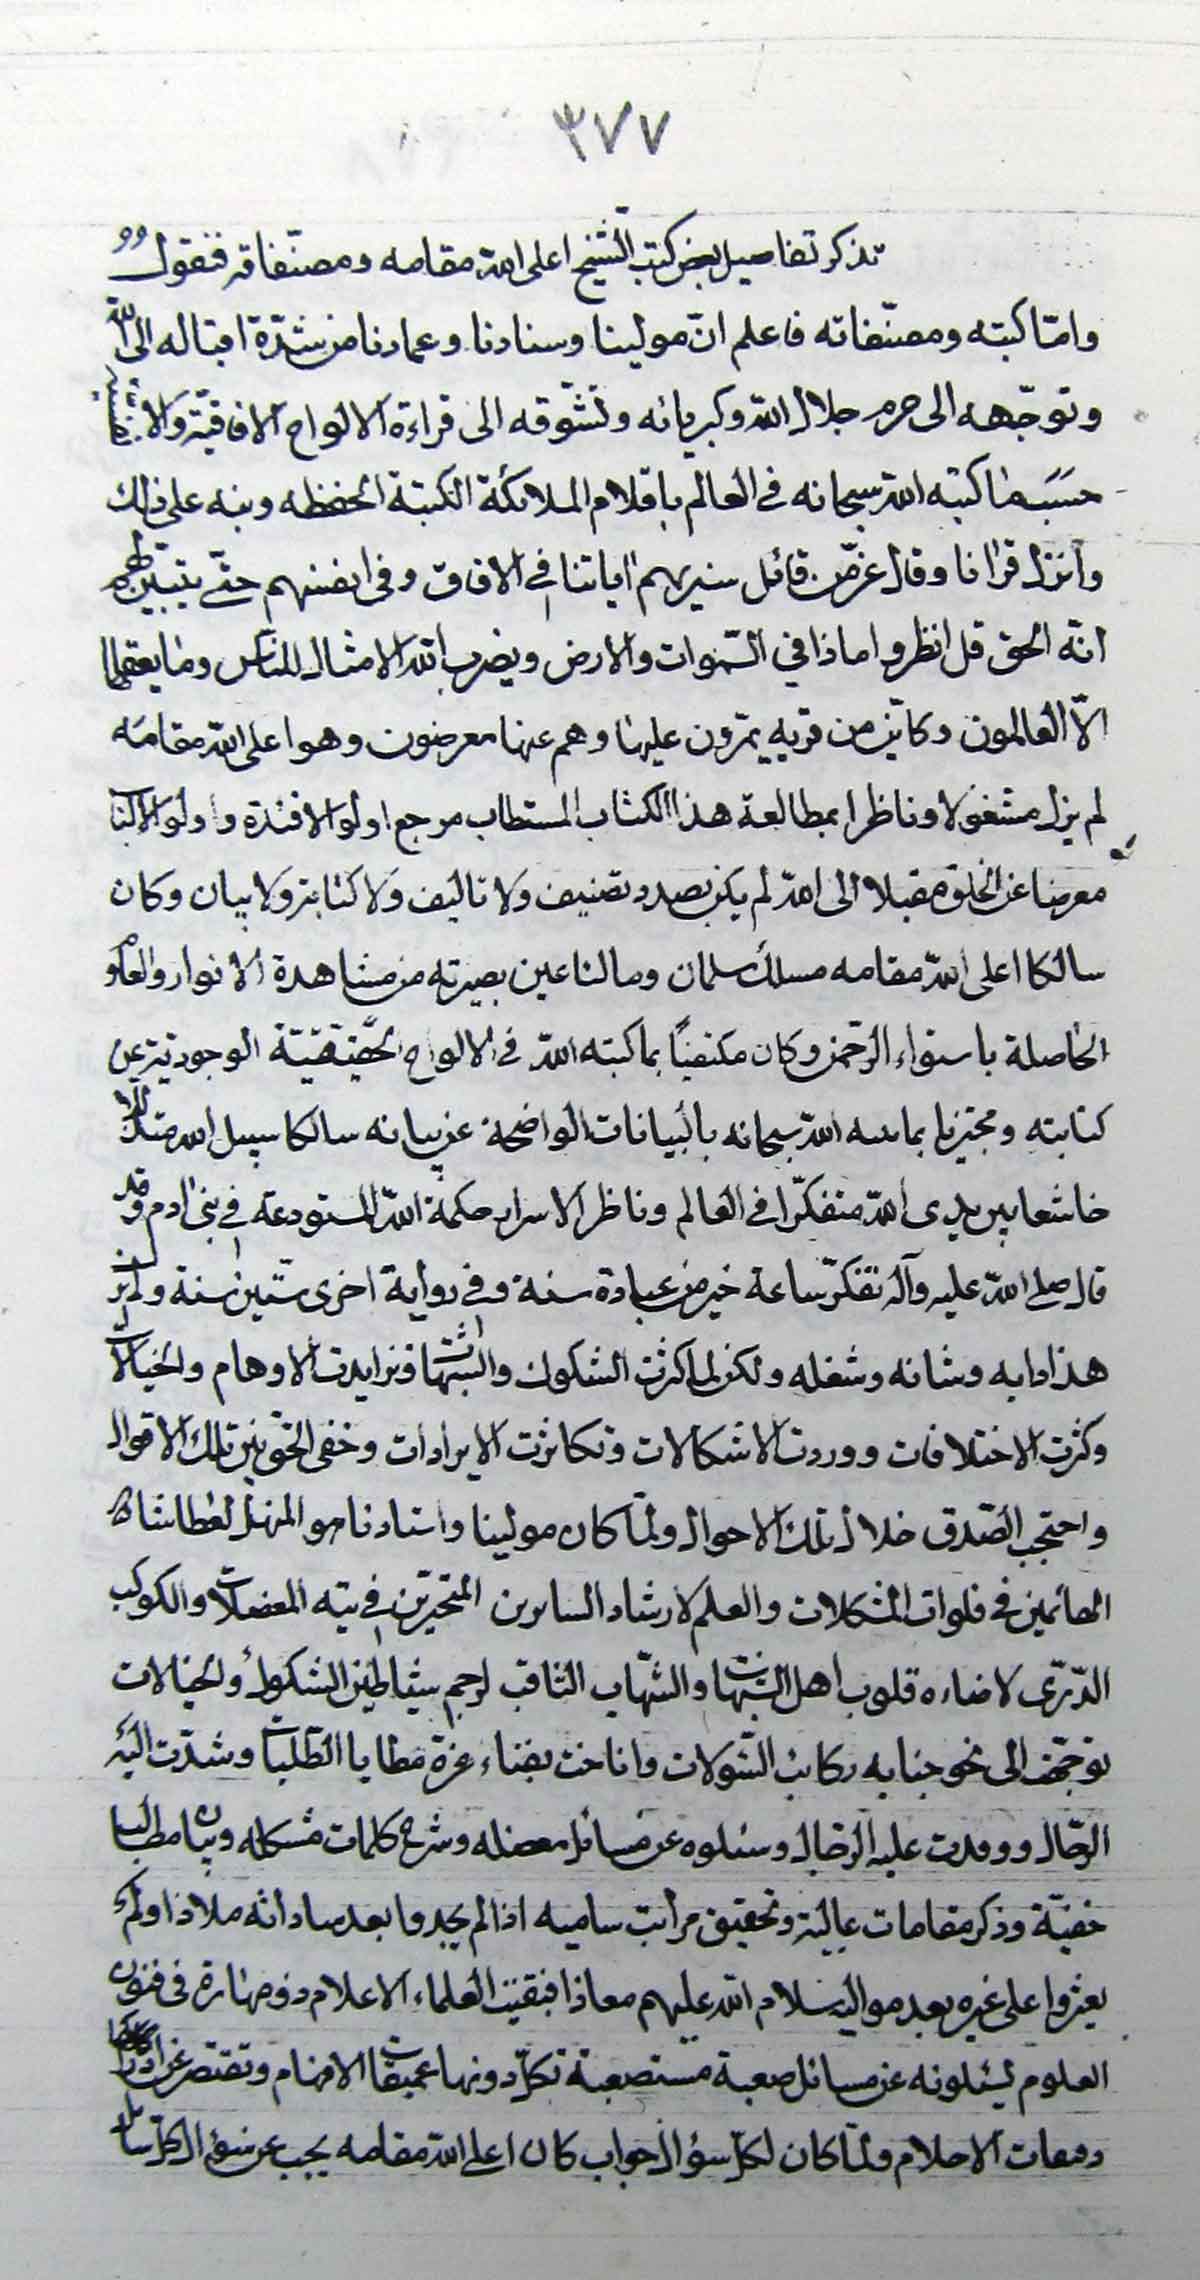 ٣٧٧
تذكر تفاصيل بعض كتب الشيخ اعلى الله مقامه ومصنّفاته فنقول
وامّا كتبه ومصنّفاته فاعلم انّ مولينا وسنادنا وعمادنا من شدّة اقباله الى الله
وتوجّهه الى حرم جلال الله وكبريائه وتشوّقه الى قراءة الالواح الافاقيّة والانفسيّة
حسب ما كتبه الله سبحانه في العالم باقلام الملائكة الكتبة الحفظه ونبه على ذلك
وانزل قرانا وقال عزّ من قائل سنريهم اياتنا في الافاق وفي انفسهم حتّى يتبيّن لهم
انّه الحق قل انظروا ماذا في السّموات والارض ويضرب الله الامثال للناس وما يعقلها
الّا العالمون وكايّن من قريه يمرّون عليها وهم عنها معرضون وهو اعلى الله مقامه
لم يزل مشغولا وناظرا بمطالعة هذا الكتاب المستطاب مرجع اولو الافئدة واولو الالباب
معرضا عن الخلق مقبلا الى الله لم يكن بصدد تصنيف ولا تاليف ولا كتابة ولا بيان وكان
سالكا اعلى الله مقامه مسلك سلمان ومالئا عين بصيرته من مشاهدة الانوار والعلوم
الحاصلة باستواء الرّحمن وكان مكتفيًا بما كتبه الله في الالواح الحقيقيّة الوجوديّة عن
كتابته ومجتزيا بما بينه الله سبحانه بالبيانات الواضحة عن بيانه سالكا سبيل الله متذللا
خاشعا بين يدى الله متفكّرا في العالم وناظرا لاسرار حكمة الله المستودعة في بنى ادم وقد
قال صلى الله عليه وآله تفكّر ساعة خير من عبادة سنة وفي رواية اخرى ستّين سنة ولم يزل
هذا دابه وشانه وشغله ولكن لما كثرت الشكوك والشبهات وتزايدت الاوهام والخيالات
وكثرت الاختلافات ووردت الاشكالات وتكاثرت الايرادات وخفى الحقّ بين تلك الاقوال
واحتجب الصّدق خلال تلك الاحوال ولمّا كان مولينا واستادنا هو المنهل لعطاشا
الهائمين في فلوات المشكلات والعلم لارشاد السايرين المتحيّرين في تيه المعضلات والكوكب
الدّرّى لاضاءه قلوب اهل الشبهات والشّهاب الثاقب لرجم شياطين الشكوك والخيالات
توجّهت الى نحو جنابه ركائب السّؤلات واناخت بفناء عزه مطايا الطّلبات وشدّت اليه
الرحال ووفدت عليه الرّجال وسئلوه عن مسائل معضله وشرح كلمات مشكله وبيان مطالب
خفيّة وذكر مقامات عالية وتحقيق مراتب ساميه اذ لم يجدوا بعد ساداته ملاذا ولم
يعثروا على غيره بعد مواليه سلام الله عليهم معاذا فبقيت العلماء الاعلام ذو مهارة في فنون
العلوم يسئلونه عن مسائل صعبة مستصعبة تكلّ دونها عميقات الافهام وتقتصر عن ادراكها
ومعات الاحلام ولمّا كان لكلّ سؤال جواب كان اعلى الله مقامه يجيب عن سؤال كلّ سائل